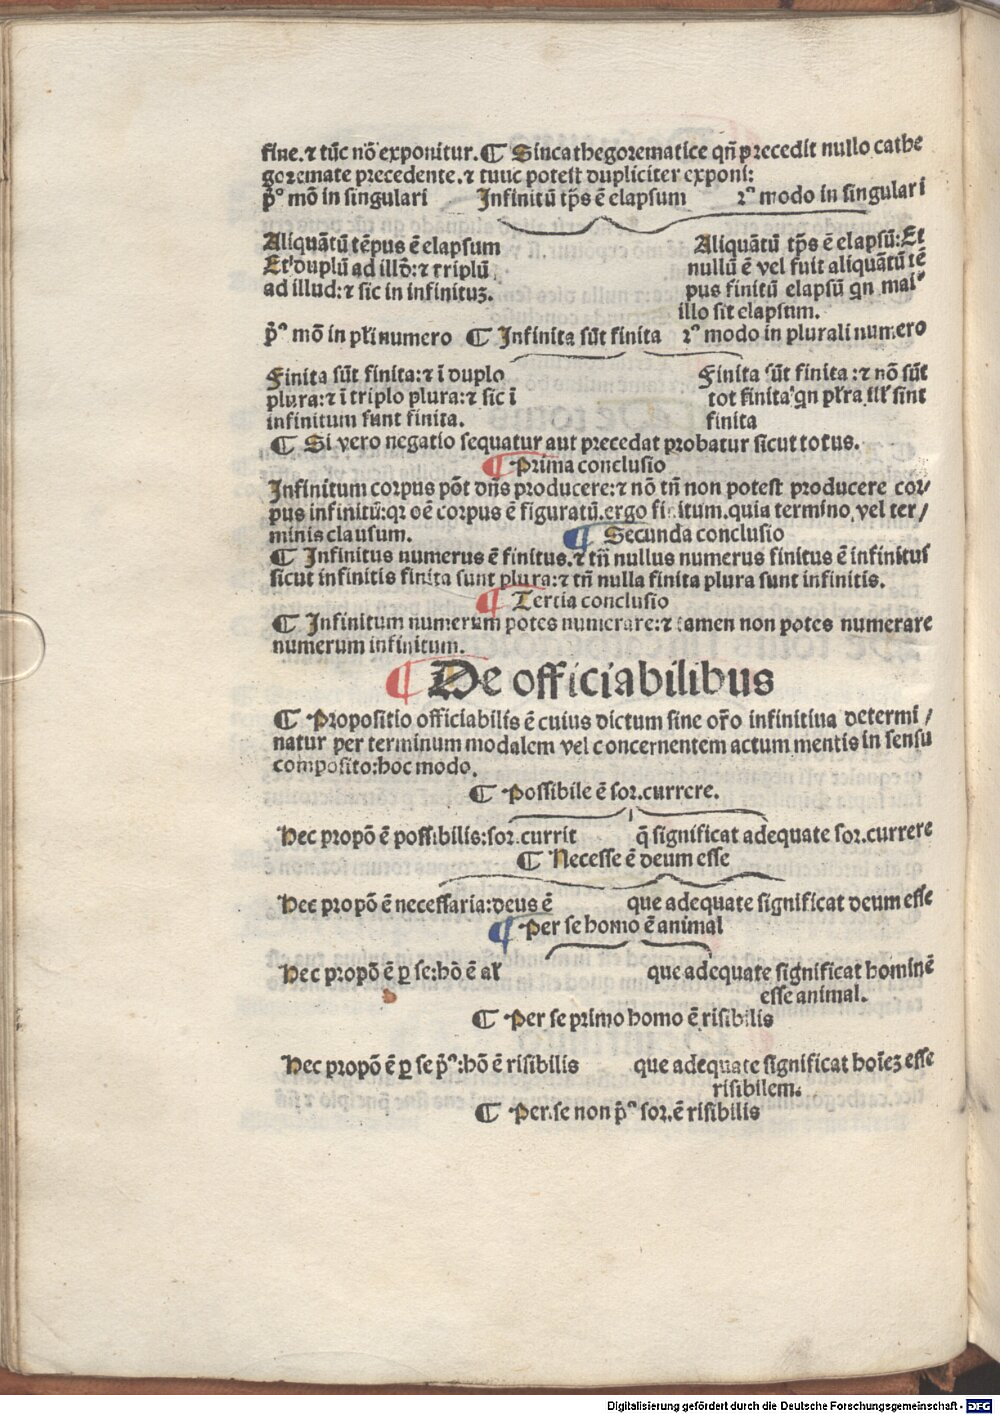 fine.⁊ tūc nō exponitur.¶ Sincathegorematice qn̄ precedit nullo cathe
goremate precedente.⁊ tuuc potest dupliciter exponi:
p̊ mō in singulari Infinitū tp̄s ē elapsum 2º modo in singulari
Aliquātū tēpus ē elapsum
Et duplū ad illd̄:⁊ triplū
ad illud:⁊ sic in infinituꝫ.
Aliquātū tp̄s ē elapsū:Et
nullū ē vel fuit aliquātū tē
pus finitū elapsū qn mai⁹
illo sit elapsum.
p̊ mō in pl̄i numero ¶ Infinita sūt finita 2º modo in plurali numero
Finita sūt finita:⁊ ī duplo
plura:⁊ ī triplo plura:⁊ sic ī
infinitum sunt finita.
Finita sūt finita:⁊ nō sūt
tot finita qn pl̄ra ill' sint
finita
¶ Si vero negatio sequatur aut precedat probatur sicut totus.
¶ Prima conclusio
Infinitum corpus pōt dn̄s producere:⁊ nō tn̄ non potest producere cor/
pus infinitū:qr oē corpus ē figuratū.ergo finitum.quia termino vel ter/
minis clausum. ¶ Secunda conclusio
¶ Infinitus numerus ē finitus.⁊ tn̄ nullus numerus finitus ē infinitus
sicut infinitis finita sunt plura:⁊ tn̄ nulla finita plura sunt infinitis.
¶ Tertia conclusio
¶ Infinitum numerum potes numerare:⁊ tamen non potes numerare
numerum infinitum.
¶ De officiabilibus
¶ Propositio officiabilis ē cuius dictum sine or̄o infinitiua determi/
natur per terminum modalem vel concernentem actum mentis in sensu
composito:hoc modo.
¶ Possibile ē sor.currere.
Hec propō ē possibilis:sor.currit q̄ significat adequate sor.currere
¶ Necesse ē deum esse
Hec propō ē necessaria:deus ē que adequate significat deum esse
¶ Per se homo ē animal
Hec propō ē ꝑ se:hō ē al' que adequate significat hominē
esse animal.
¶ Per se primo homo ē risibilis
Hec propō ē ꝑ se p̊:hō ē risibilis que adequate significat hoīeꝫ esse
risibilem.
¶ Per.se non p̊ sor.ē risibilis
Digitalisierung gefördert durch die Deutsche Forschungsgemeinschaft - DFG